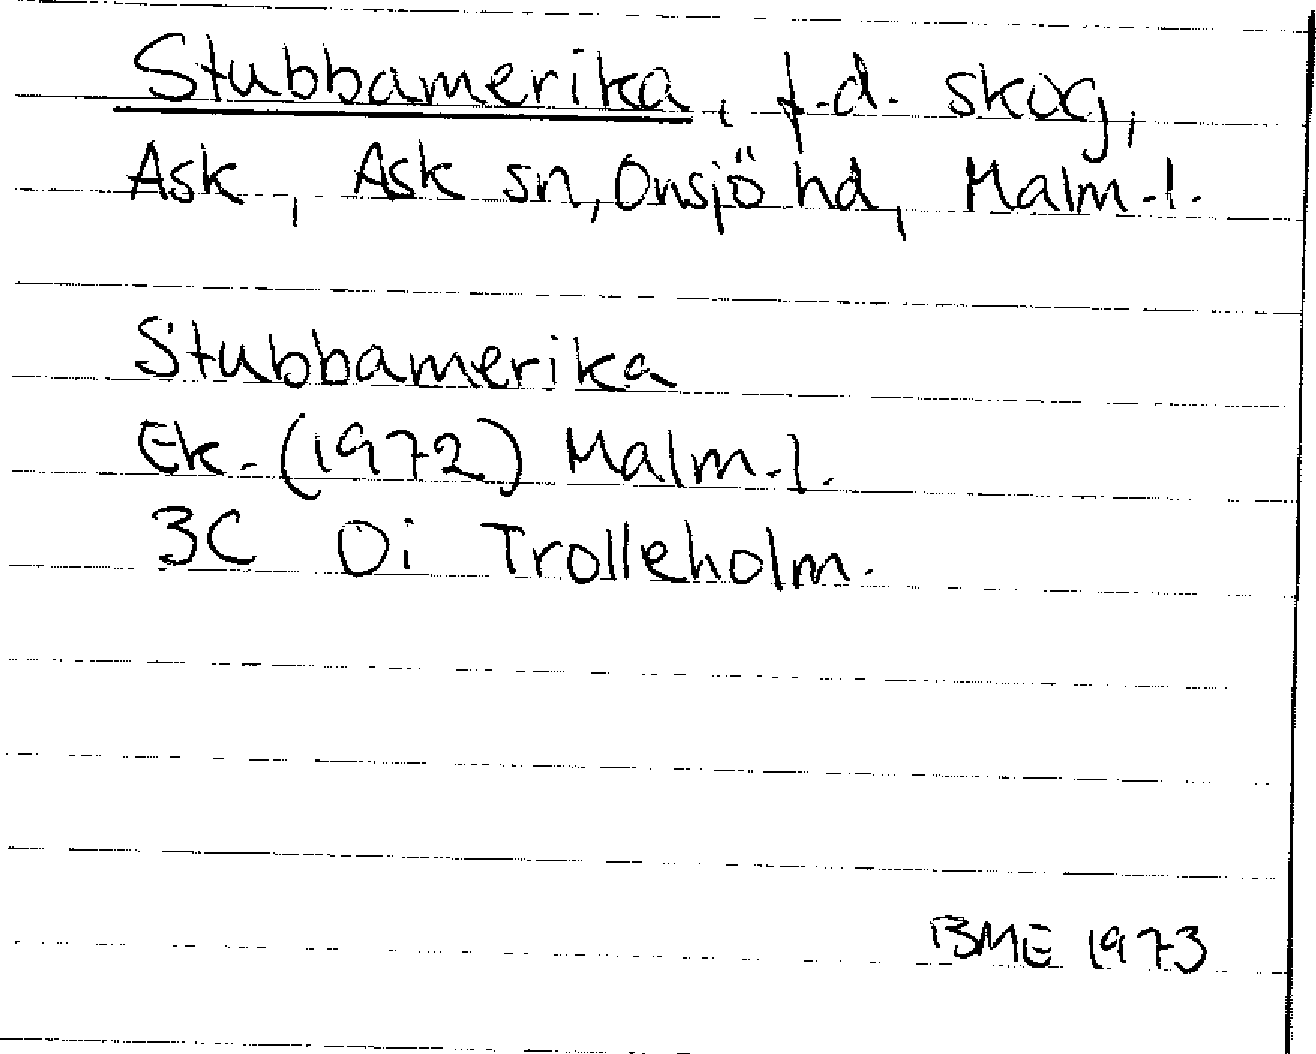 Stubbamerika, f.d. skog,
Ask, Ask sn, Onsjö hd, Malm.l.
Stubbamerika
Ek. (1972) Malm.l.
3C Oi Trolleholm.
BME 1973